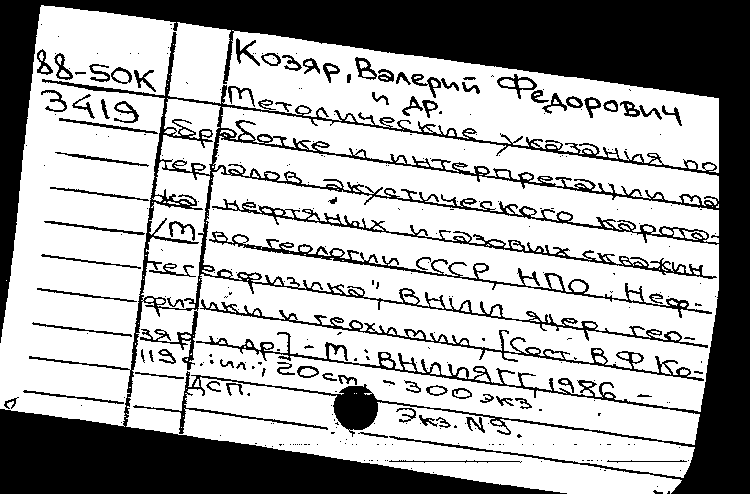 88-50К
3419
Козяр, Валерий Федорович
и др.
Методические указания по
обработке и интерпретации ма
териалов акустического карота-
жа нефтяных и газовых скважин
/М-во геологии СССР, НПО „Неф-
тегеофизика", ВНИИ ядер. гео-
физики и геохимии; [Сост. В.Ф Ко-
зяр и др.] - М.: ВНИИЯГГ, 1986. -
119 с.: ил.; 20 cm. - 300 экз.
ДСП.
Экз. N9.